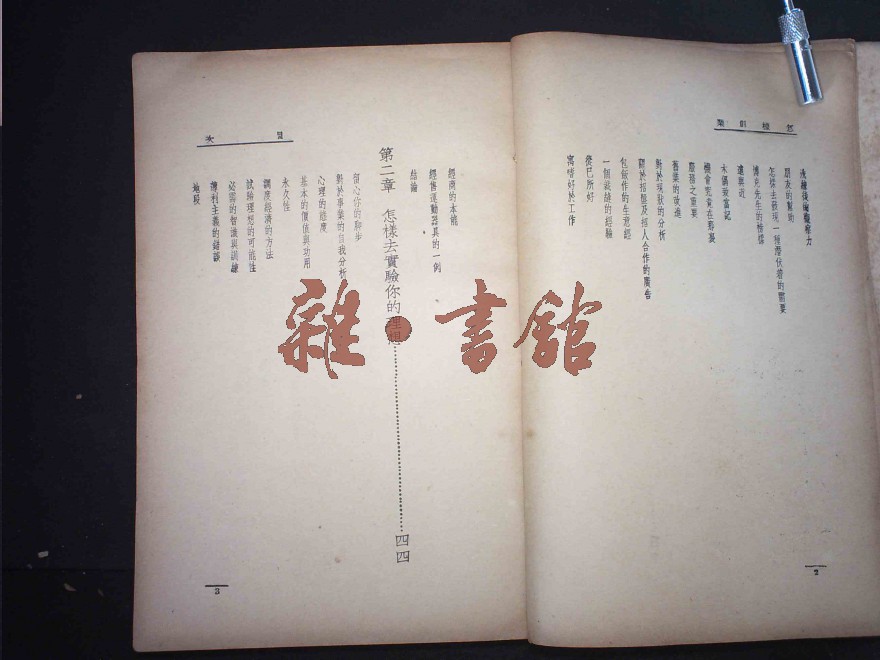 怎樣創業
朋友的幫助
怎樣去發現一種潛伏着的需要
博克先生的榜樣
遠與近
木偶致富記
機會究竟在那裏
服務之重要
舊業的改進
對於現狀的分析
關於招盤及招人合作的廣告
包飯作的生意經
一個裁縫的經驗
從己所好
寓嗜好於工作
2
目次
經商的本能
經售運動器具的一例
結論
第二章 怎樣去實驗你的理想……四四
留心你的腳步
對於事業的自我分析
心理的態度
基本的價值與功用
永久性
調度經濟的方法
試驗理想的可能性
必需的智識與訓練
薄利主義的錯誤
地段
3
雜·書館